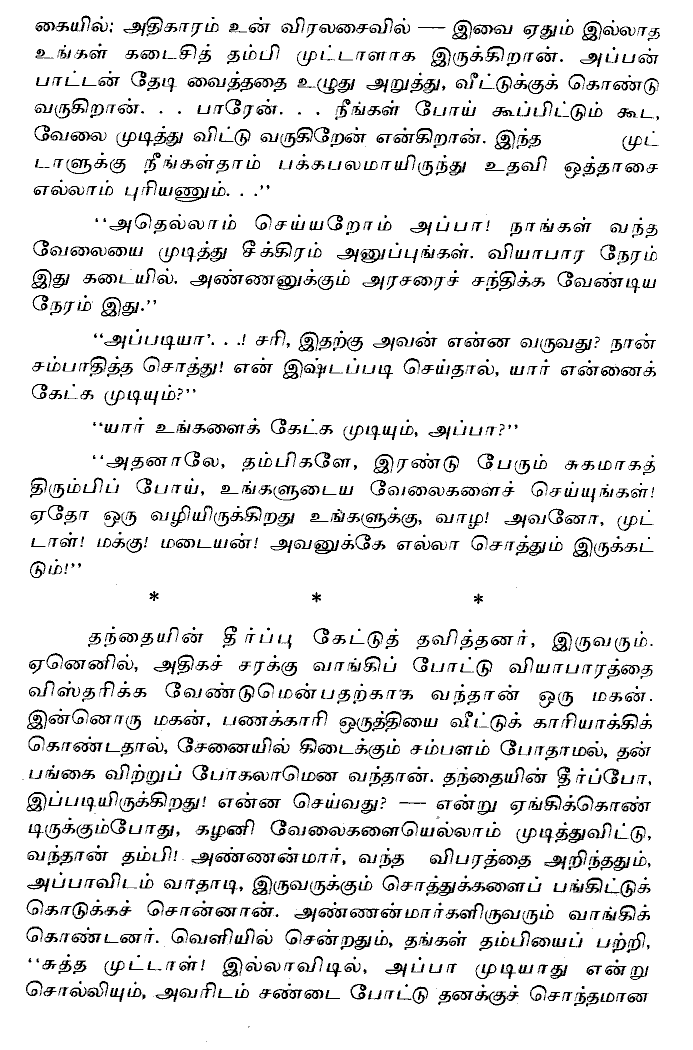 கையில்; அதிகாரம் உன் விரலசைவில் — இவை ஏதும் இல்லாத
உங்கள் கடைசித் தம்பி முட்டாளாக இருக்கிறான். அப்பன்
பாட்டன் தேடி வைத்ததை உழுது அறுத்து, வீட்டுக்குக் கொண்டு
வருகிறான். . . பாரேன். . . நீங்கள் போய் கூப்பிட்டும் கூட,
வேலை முடித்து விட்டு வருகிறேன் என்கிறான். இந்த முட்
டாளுக்கு நீங்கள்தாம் பக்கபலமாயிருந்து உதவி ஒத்தாசை
எல்லாம் புரியணும். . .”
“அதெல்லாம் செய்யறோம் அப்பா! நாங்கள் வந்த
வேலையை முடித்து சீக்கிரம் அனுப்புங்கள். வியாபார நேரம்
இது கடையில். அண்ணனுக்கும் அரசரைச் சந்திக்க வேண்டிய
நேரம் இது.”
“அப்படியா'. . .! சரி, இதற்கு அவன் என்ன வருவது? நான்
சம்பாதித்த சொத்து! என் இஷ்டப்படி செய்தால், யார் என்னைக்
கேட்க முடியும்?”
“யார் உங்களைக் கேட்க முடியும், அப்பா?”
“அதனாலே, தம்பிகளே, இரண்டு பேரும் சுகமாகத்
திரும்பிப் போய், உங்களுடைய வேலைகளைச் செய்யுங்கள்!
ஏதோ ஒரு வழியிருக்கிறது உங்களுக்கு, வாழ! அவனோ, முட்
டாள்! மக்கு! மடையன்! அவனுக்கே எல்லா சொத்தும் இருக்கட்
டும்!”
* * *
தந்தையின் தீர்ப்பு கேட்டுத் தவித்தனர், இருவரும்.
ஏனெனில், அதிகச் சரக்கு வாங்கிப் போட்டு வியாபாரத்தை
விஸ்தரிக்க வேண்டுமென்பதற்காக வந்தான் ஒரு மகன்.
இன்னொரு மகன், பணக்காரி ஒருத்தியை வீட்டுக் காரியாக்கிக்
கொண்டதால், சேனையில் கிடைக்கும் சம்பளம் போதாமல், தன்
பங்கை விற்றுப் போகலாமென வந்தான். தந்தையின் தீர்ப்போ,
இப்படியிருக்கிறது! என்ன செய்வது? — என்று ஏங்கிக்கொண்
டிருக்கும்போது, கழனி வேலைகளையெல்லாம் முடித்துவிட்டு,
வந்தான் தம்பி! அண்ணன்மார், வந்த விபரத்தை அறிந்ததும்,
அப்பாவிடம் வாதாடி, இருவருக்கும் சொத்துக்களைப் பங்கிட்டுக்
கொடுக்கச் சொன்னான். அண்ணன்மார்களிருவரும் வாங்கிக்
கொண்டனர். வெளியில் சென்றதும், தங்கள் தம்பியைப் பற்றி,
“சுத்த முட்டாள்! இல்லாவிடில், அப்பா முடியாது என்று
சொல்லியும், அவரிடம் சண்டை போட்டு தனக்குச் சொந்தமான